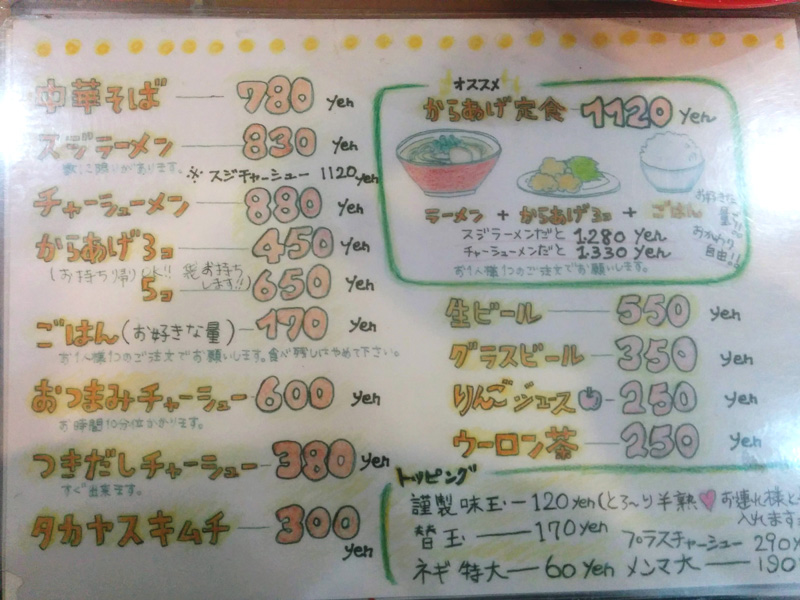 中華そば — 780 yen
スジラーメン — 830 yen
数に限りがあります。
※ スジチャーシュー 1120 yen
チャーシューメン — 880 yen
からあげ 3コ — 450 yen
(お持ち帰りOK!!
5コ — 650 yen
袋お持ちします!!)
ごはん(お好きな量) — 170 yen
お1人様1つのご注文でお願いします。食べ残しはやめて下さい。
おつまみチャーシュー — 600 yen
お時間10分位かかります。
つきだしチャーシュー — 380 yen
すぐ出来ます。
タカヤスキムチ — 300 yen
オススメ
からあげ定食 — 1120 yen
ラーメン + からあげ3コ + ごはん
お好きな量で!!
おかわり自由!!
スジラーメンだと 1.280 yen
チャーシューメンだと 1.330 yen
お1人様1つのご注文でお願いします。
生ビール — 550 yen
グラスビール — 350 yen
りんごジュース — 250 yen
ウーロン茶 — 250 yen
トッピング
謹製味玉 — 120 yen (とろ〜り半熟♥お連れ様と
入れます
替玉 — 170 yen
プラスチャーシュー 290 y
ネギ特大 — 60 yen メンマ大 — 190